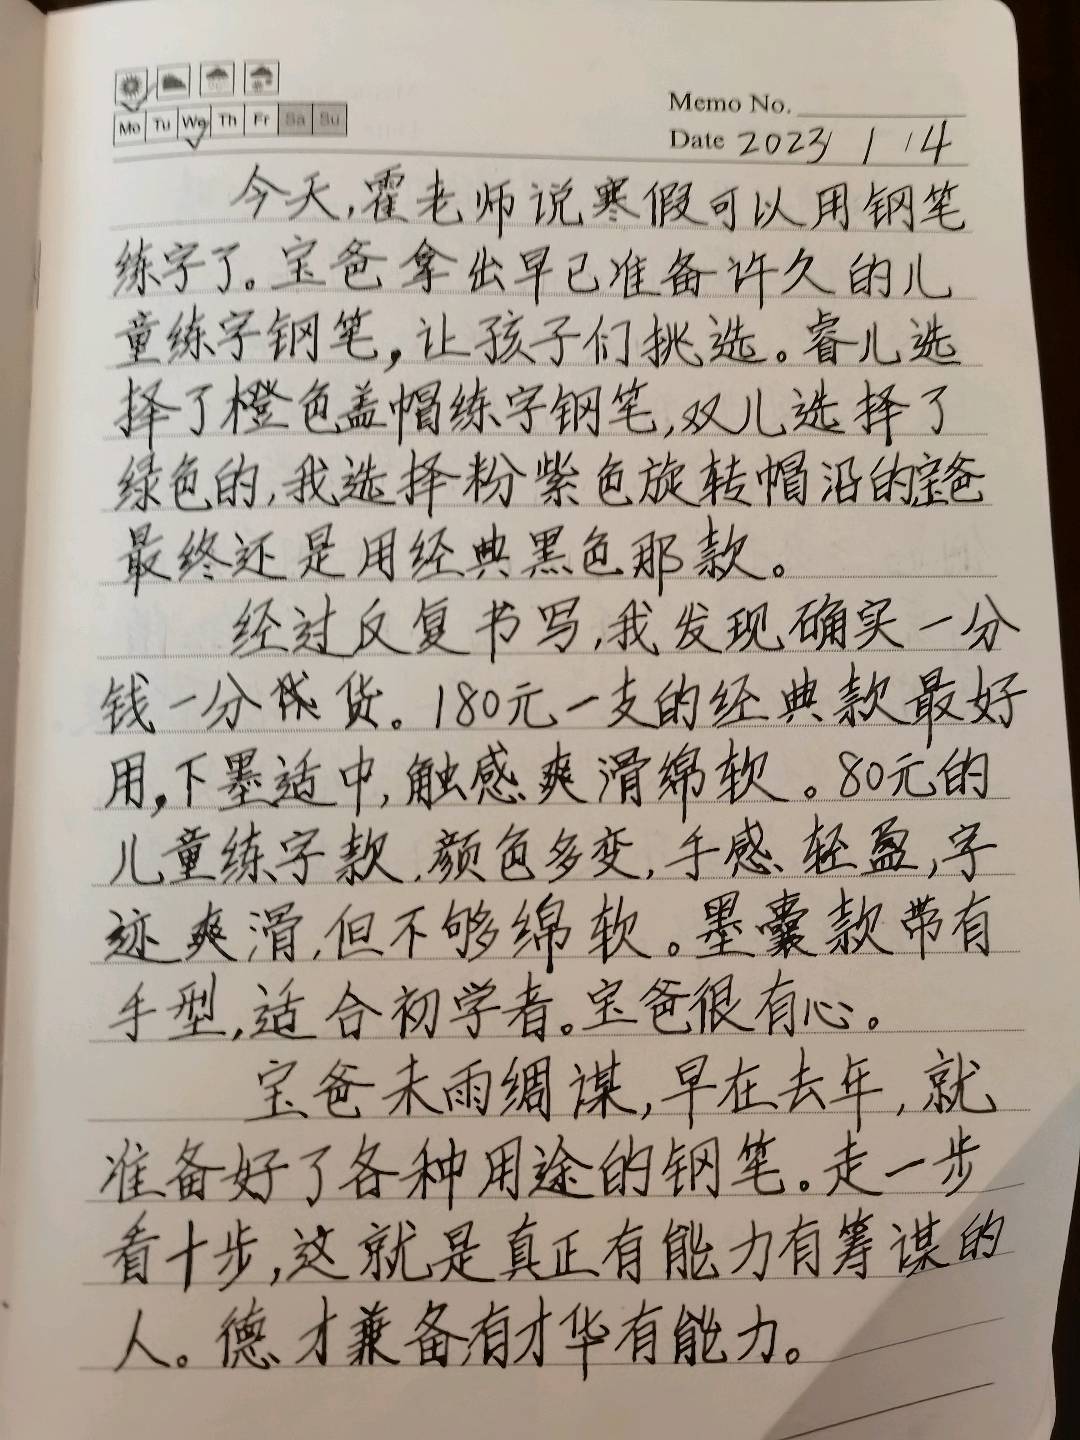 Mo Tu We Th Fr Sa Su
Memo No.
Date 2023 1 14
今天,霍老师说寒假可以用钢笔
练字了。宝爸拿出早已准备许久的儿
童练字钢笔,让孩子们挑选。睿儿选
择了橙色盖帽练字钢笔,双儿选择了
绿色的,我选择粉紫色旋转帽沿的宝爸
最终还是用经典黑色那款。
经过反复书写,我发现确实一分
钱一分货。180元一支的经典款最好
用,下墨适中,触感爽滑绵软。80元的
儿童练字款,颜色多变,手感轻盈,字
迹爽滑,但不够绵软。墨囊款带有
手型,适合初学者。宝爸很有心。
宝爸未雨绸谋,早在去年,就
准备好了各种用途的钢笔。走一步
看十步,这就是真正有能力有筹谋的
人。德才兼备有才华有能力。